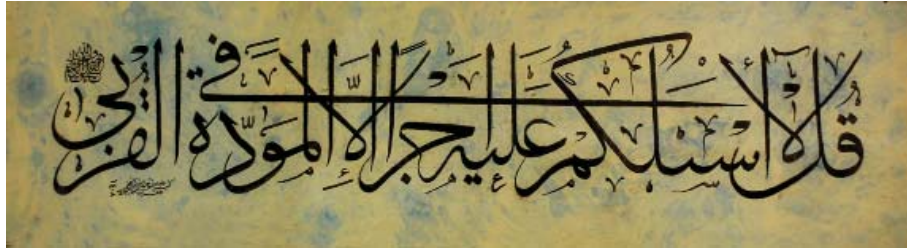 قل لا أسئلكم عليه أجرًا إلّا المودّة في القربى